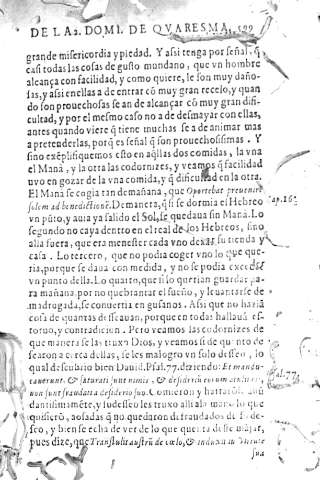 DE LA 2. DOMI. DE QVARESMA. 199
grande misericordia y piedad. Y assi tenga por señal, q̃
casi todas las cosas de gusto mundano, que vn hombre
alcança con facilidad, y como quiere, le son muy daño-
sas, y assi en ellas a de entrar cõ muy gran recelo, y quan
do son prouechosas se an de alcançar cõ muy gran difi-
cultad, y por el mesmo caso no a de desmayar con ellas,
antes quando viere q̃ tiene muchas se a de animar mas
a pretenderlas, porq̃ es señal q̃ son prouechosissimas. Y
sino exẽplifiquemos esto en aq̃llas dos comidas, la vna
el Manà, y la otra las codornizes, y veamos q̃ facilidad
uvo en gozar de la vna comida, y q̃ dificultad en la otra.
El Manà se cogia tan de mañana, que Oportebat preuenire
solem ad benedictionẽ. De manera, q̃ si se dormia el Hebreo
vn pũto, y auia ya salido el Sol, se quedaua sin Manà. Lo
segundo no caya dentro en el real de los Hebreos, sino
alla fuera, que era menester cada vno dexar su tienda y
casa. Lo tercero, que no podia coger vno lo que que-
ria, porque se daua con medida, y no se podia exceder
vn punto della. Lo quarto, que si lo querian guardar pa-
ra mañana, por no quebrantar el sueño, y leuantarse de
madrugada, se conuertia en gusanos. Assi que no hauia
cosa de quantas desseauan, porque en todas hallauã es-
toruo, y contradicion. Pero veamos las codornizes de
que manera se las truxo Dios, y veamos si de quanto de
searon acerca dellas, se les malogro vn solo desseo, lo
qual descubrio bien Dauid. Psal. 77. diziendo: Et mandu-
cauerunt, & saturati sunt nimis, & desiderium eorum attulit eis,
non sunt fraudati a desiderio suo. Comieron y hartarõse
dantissimamẽte, y
quisierõ, aosadas q̃ no quedaron defraudados de su de-
seo, y bien se echa de ver de lo que queria dessear,
pues dize, que Transtulit austrũ de cœlo, & induxit in virtute
sua
Cap. 16.
Psal. 77.